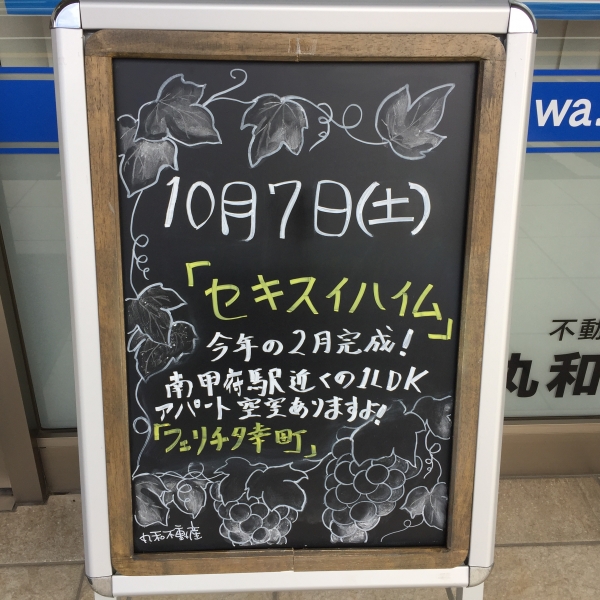 10月7日(土)
「セキスイハイム」
今年の2月完成!
南甲府駅近くの1LDK
アパート空室ありますよ!
「フェリチタ幸町」
丸和不動産
wa.
不動
丸和